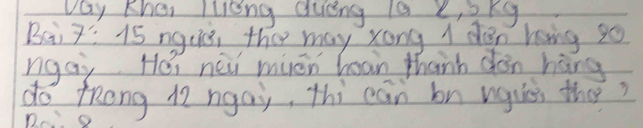 Vậy khối lượng đường là 2,5 kg
Bài 7: 15 người thợ may xong 1 đơn hàng 20
ngày. Hỏi nếu muốn hoàn thành đơn hàng
đó trong 12 ngày, thì cần bn người thợ?